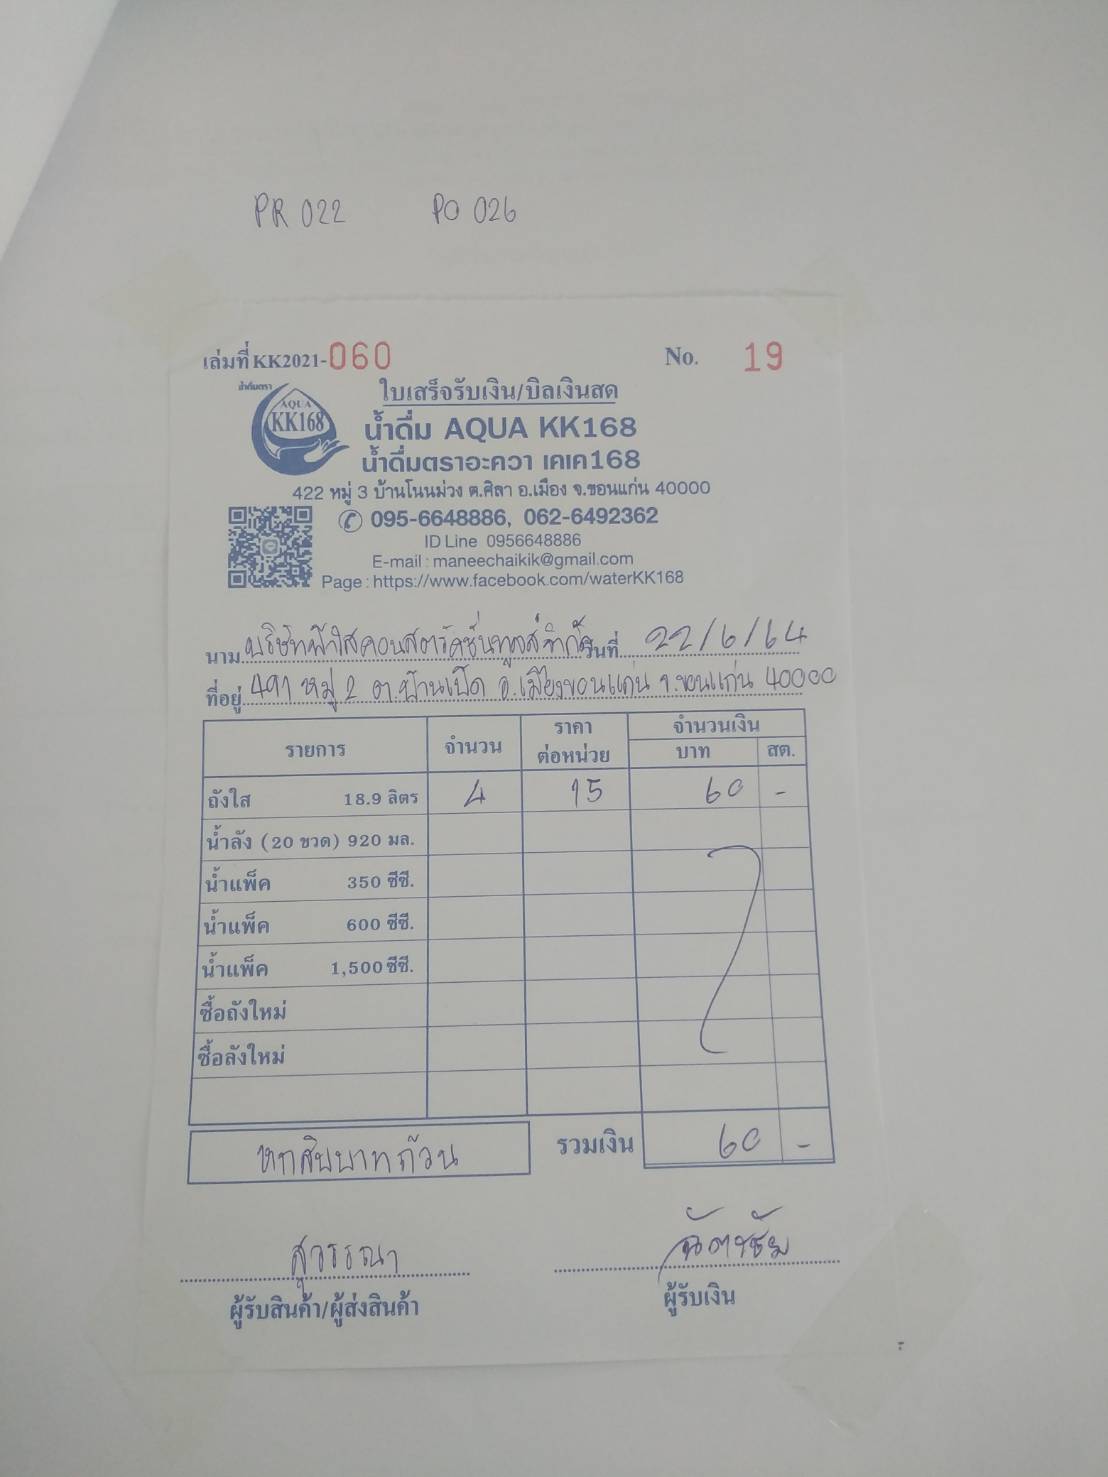 PR 022 PO 026
เล่มที่ KK2021-060 No. 19
ใบเสร็จรับเงิน/บิลเงินสด
น้ำดื่มตรา
AQUA
KK168
น้ำดื่ม AQUA KK168
น้ำดื่มตราอะควา เคเค168
422 หมู่ 3 บ้านโนนม่วง ต.ศิลา อ.เมือง จ.ขอนแก่น 40000
095-6648886, 062-6492362
ID Line 0956648886
E-mail : maneechaikik@gmail.com
Page : https://www.facebook.com/waterKK168
นาม บริษัทฟ้าใสคอนสตรัคชั่นทูลส์จำกัด วันที่ 22/6/64
ที่อยู่ 491 หมู่ 2 ต.บ้านเป็ด อ.เมืองขอนแก่น จ.ขอนแก่น 40000
รายการ จำนวน ราคาต่อหน่วย จำนวนเงิน
บาท สต.
ถังใส 18.9 ลิตร 4 15 60 -
น้ำลัง (20 ขวด) 920 มล.
น้ำแพ็ค 350 ซีซี.
น้ำแพ็ค 600 ซีซี.
น้ำแพ็ค 1,500 ซีซี.
ซื้อถังใหม่
ซื้อลังใหม่
หกสิบบาทถ้วน รวมเงิน 60 -
สุวรรณา ฉัตรชัย
ผู้รับสินค้า/ผู้ส่งสินค้า ผู้รับเงิน